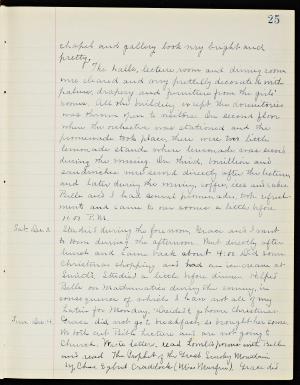 25
chapel and gallery look very bright and
pretty.
The halls, lecture room and dining room
were cleared and very prettily decorated with
palms, drapery and furniture from the girls'
rooms. All the building except the dormitories
was thrown open to visitors. On second floor
where the orchestra was stationed and the
promenade took place, there were two little
lemonade stands where lemonade was served
during the evening. On third, bouillon and
sandwiches were served directly after the lecture
and later during the evening, coffee, ices and cake.
Belle and I had several promenades, took refresh-
ments and came to our rooms a little before
11:00 P.M.
Sat. Dec. 3. Studied during the forenoon. Grace and I went
to town during the afternoon. Went directly after
lunch and came back about 4:00. Did some
Christmas shopping and had an ice cream at
Studied a little before dinner. Helped
Belle on Mathematics during the evening, in
consequence of which I have not all of my
Latin for Monday. Decided to go home Christmas.
Sun. Dec. 4. Grace did not go to breakfast, so brought her some.
We both cut Bible lecture and are not going to
Church. Wrote letters, read Lowell's poems with Belle
and read The Prophet of the Great Smoky Mountain
by Chas. Egbert Craddock (Miss Murfree). Grace did